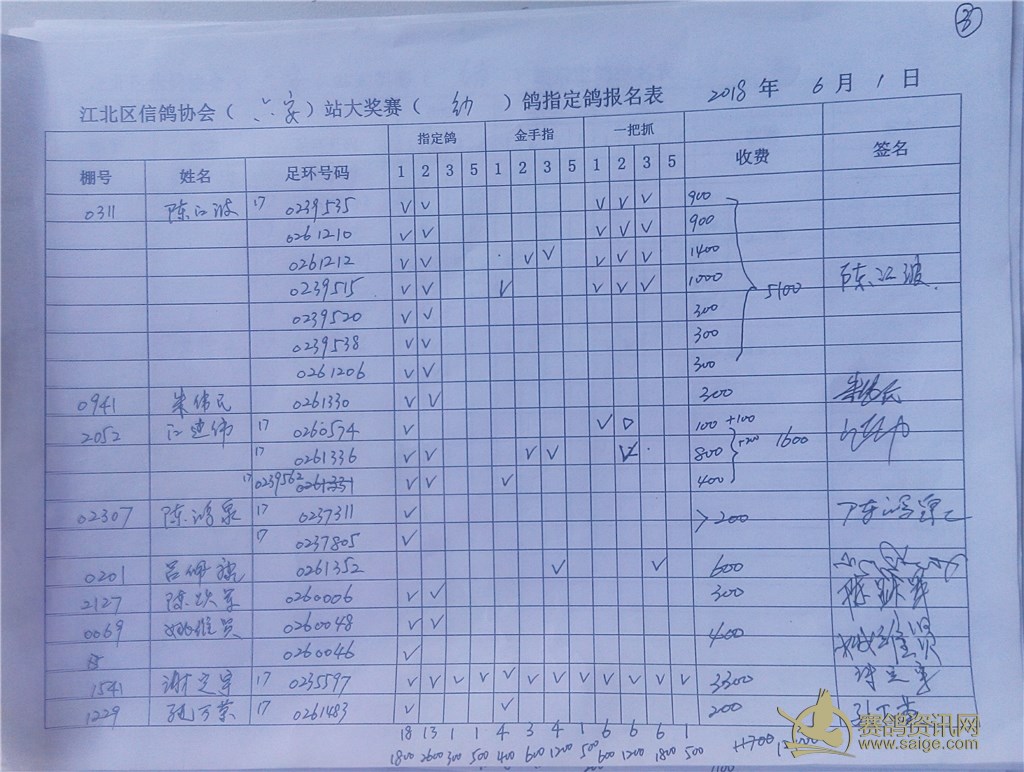 ③
江北区信鸽协会( 六安 )站大奖赛( 幼 )鸽指定鸽报名表 2018 年 6 月 1 日
指定鸽 金手指 一把抓 收费 签名
棚号 姓名 足环号码 1 2 3 5 1 2 3 5 1 2 3 5
0311 陈江波 17 0239535 √ √ √ √ √ 900
0261210 √ √ √ √ √ 900
0261212 √ √ √ √ √ √ √ 1400
0239515 √ √ √ √ √ √ 1000 5100 陈江波
0239520 √ √ 300
0239538 √ √ 300
0261206 √ √ 300
0941 朱伟民 0261330 √ √ 300 朱伟民
2052 江建伟 17 0260574 √ √ 100 +100
17 0261336 √ √ √ √ √ 800 +200 1600
17 0239562 0261331 √ √ √ 400
02307 陈鸿泉 17 0237311 √ 200
17 0237805 √
0201 吕 0261352 √ √ 600
2127 陈 军 0260006 √ √ 300
0069 姚维贤 0260048 √ √ 400 姚维贤
0260046 √
1541 谢定军 17 0235597 √ √ √ √ √ √ √ √ √ √ √ √ 3300
1229 17 0261483 √ √ 200
18 13 1 1 4 3 4 1 6 6 6 1
1800 2600 300 500 400 600 1200 500 600 1200 1800 500
赛鸽资讯网
www.saige.com